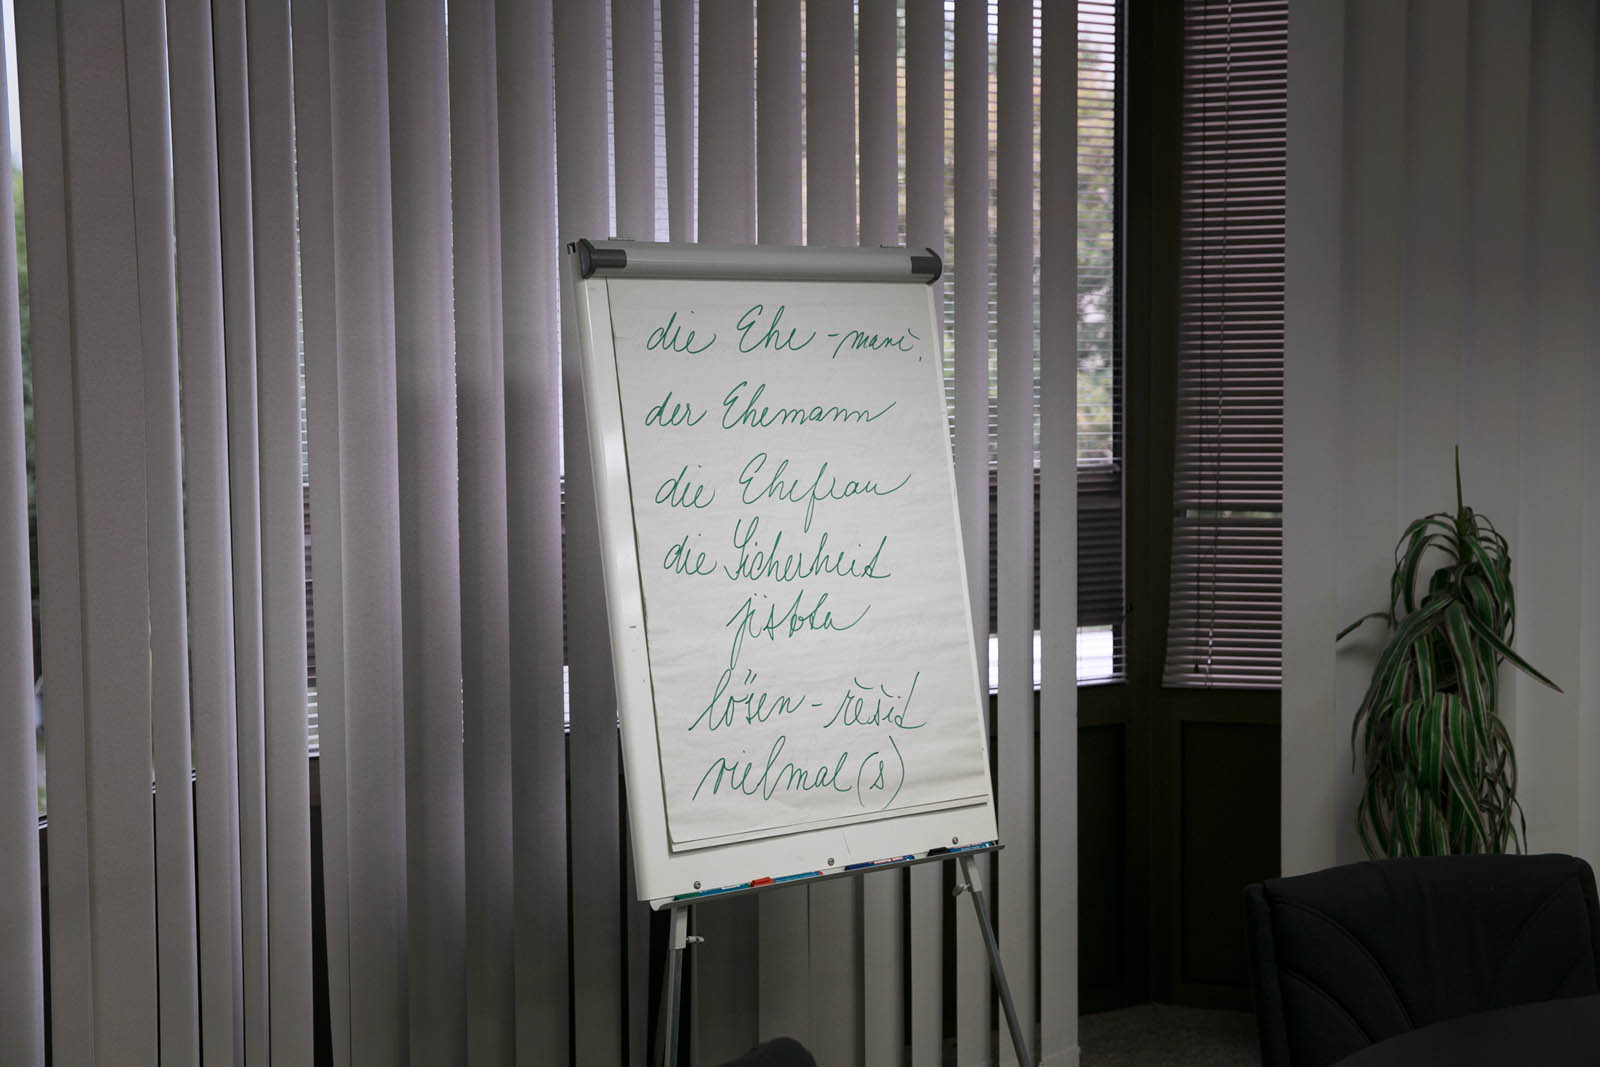 die Ehe - man.
der Ehemann
die Ehefrau
die Sicherheit
jistota
lösen - řešit
vielmal(s)